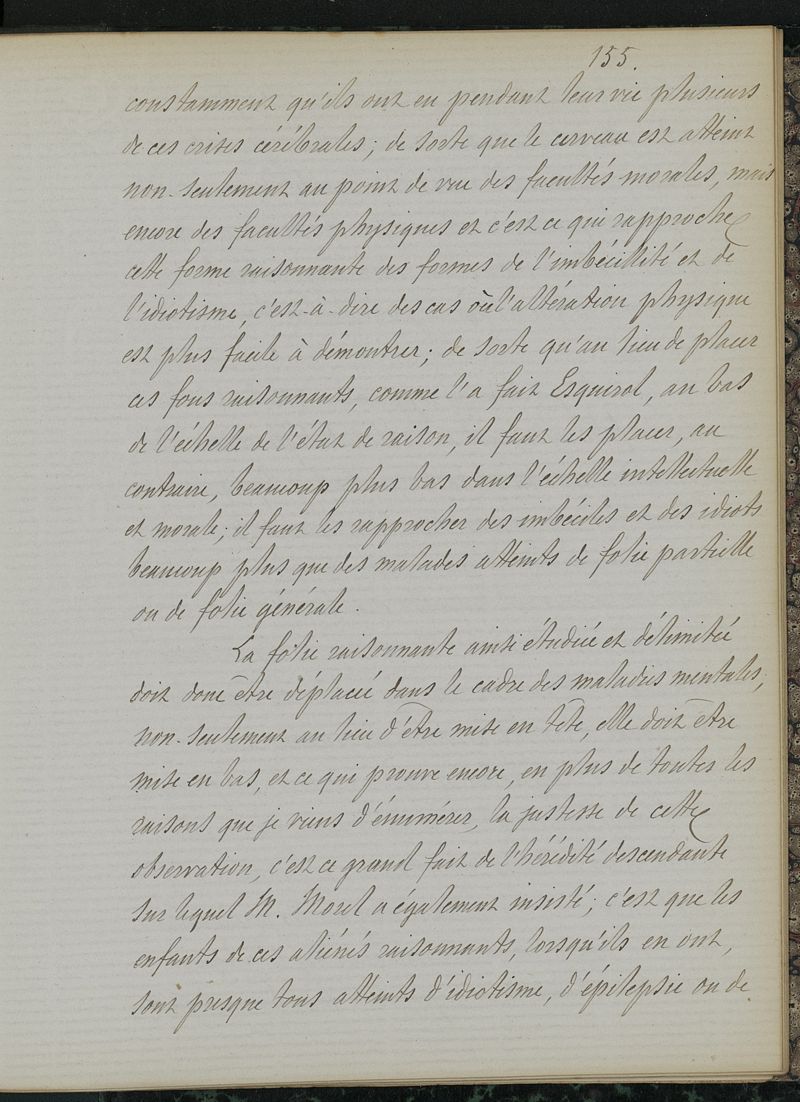 155.
constamment qu'ils ont eu pendant leur vie plusieurs
de ces crises cérébrales ; de sorte que le cerveau est atteint
non-seulement au point de vue des facultés morales, mais
encore des facultés physiques et c'est ce qui rapproche
cette forme raisonnante des formes de l'imbécillité et de
l'idiotisme, c'est-à-dire des cas où l'altération physique
est plus facile à démontrer ; de sorte qu'au lieu de placer
ces fous raisonnants, comme l'a fait Esquirol, au bas
de l'échelle de l'état de raison, il faut les placer, au
contraire, beaucoup plus bas dans l'échelle intellectuelle
et morale ; il faut les rapprocher des imbéciles et des idiots
beaucoup plus que des malades atteints de folie partielle
ou de folie générale.
La folie raisonnante ainsi étudiée et délimitée
doit donc être déplacée dans le cadre des maladies mentales ;
non-seulement au lieu d'être mise en tête, elle doit être
mise en bas, et ce qui prouve encore, en plus de toutes les
raisons que je viens d'énumérer, la justesse de cette
observation, c'est ce grand fait de l'hérédité descendante
sur lequel M. Morel a également insisté ; c'est que les
enfants de ces aliénés raisonnants, lorsqu'ils en ont,
sont presque tous atteints d'idiotisme, d'épilepsie ou de